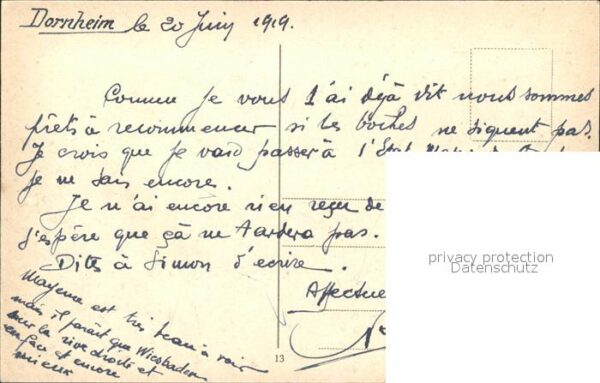 Dornheim le 20 Juin 1919.
Comme je vous l'ai déjà dit nous sommes
prêts à recommencer si les boches ne signent pas.
Je crois que je vais passer à l'Etat
je ne sais encore.
Je n'ai encore rien reçu de
j'espère que çà ne tardera pas.
Dites à Simon d'écrire.
Affectue
Mayence est très beau à voir
mais il paraît que Wiesbaden
sur la rive droite et
en face est encore
mieux
13
privacy protection
Datenschutz